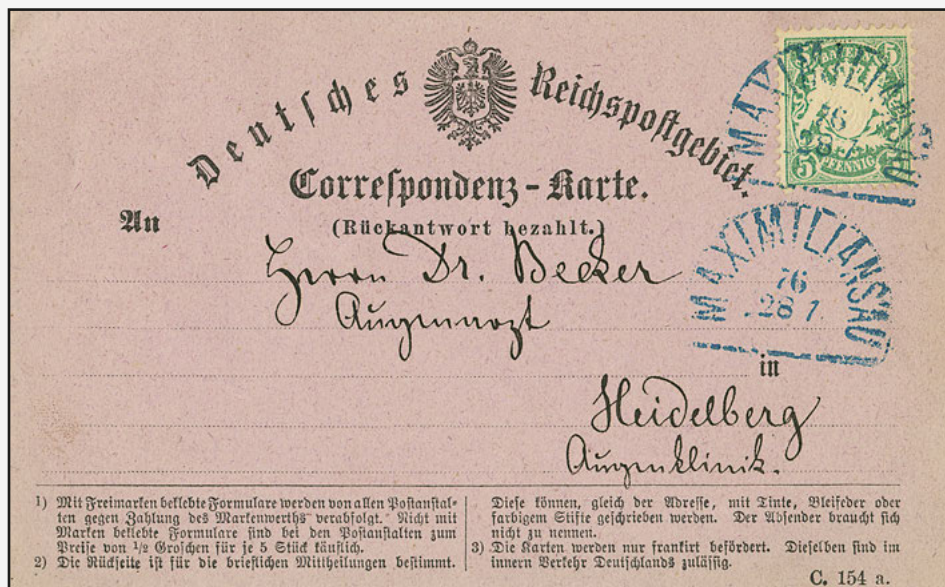 Deutsches Reichspostgebiet.
Correspondenz-Karte.
(Rückantwort bezahlt.)
An
Herrn Dr. Becker
Augenarzt
in
Heidelberg
Augenklinik.
BAYERN
5 5
5 PFENNIG
MAXIMILIANSAU
76
28 7
MAXIMILIANSAU
76
28 7
1) Mit Freimarken beklebte Formulare werden von allen Postanstal-
ten gegen Zahlung des Markenwerths verabfolgt. Nicht mit
Marken beklebte Formulare sind bei den Postanstalten zum
Preise von 1/2 Groschen für je 5 Stück käuflich.
2) Die Rückseite ist für die brieflichen Mittheilungen bestimmt.
Diese können, gleich der Adresse, mit Tinte, Bleifeder oder
farbigem Stifte geschrieben werden. Der Absender braucht sich
nicht zu nennen.
3) Die Karten werden nur frankirt befördert. Dieselben sind im
innern Verkehr Deutschlands zulässig.
C. 154 a.